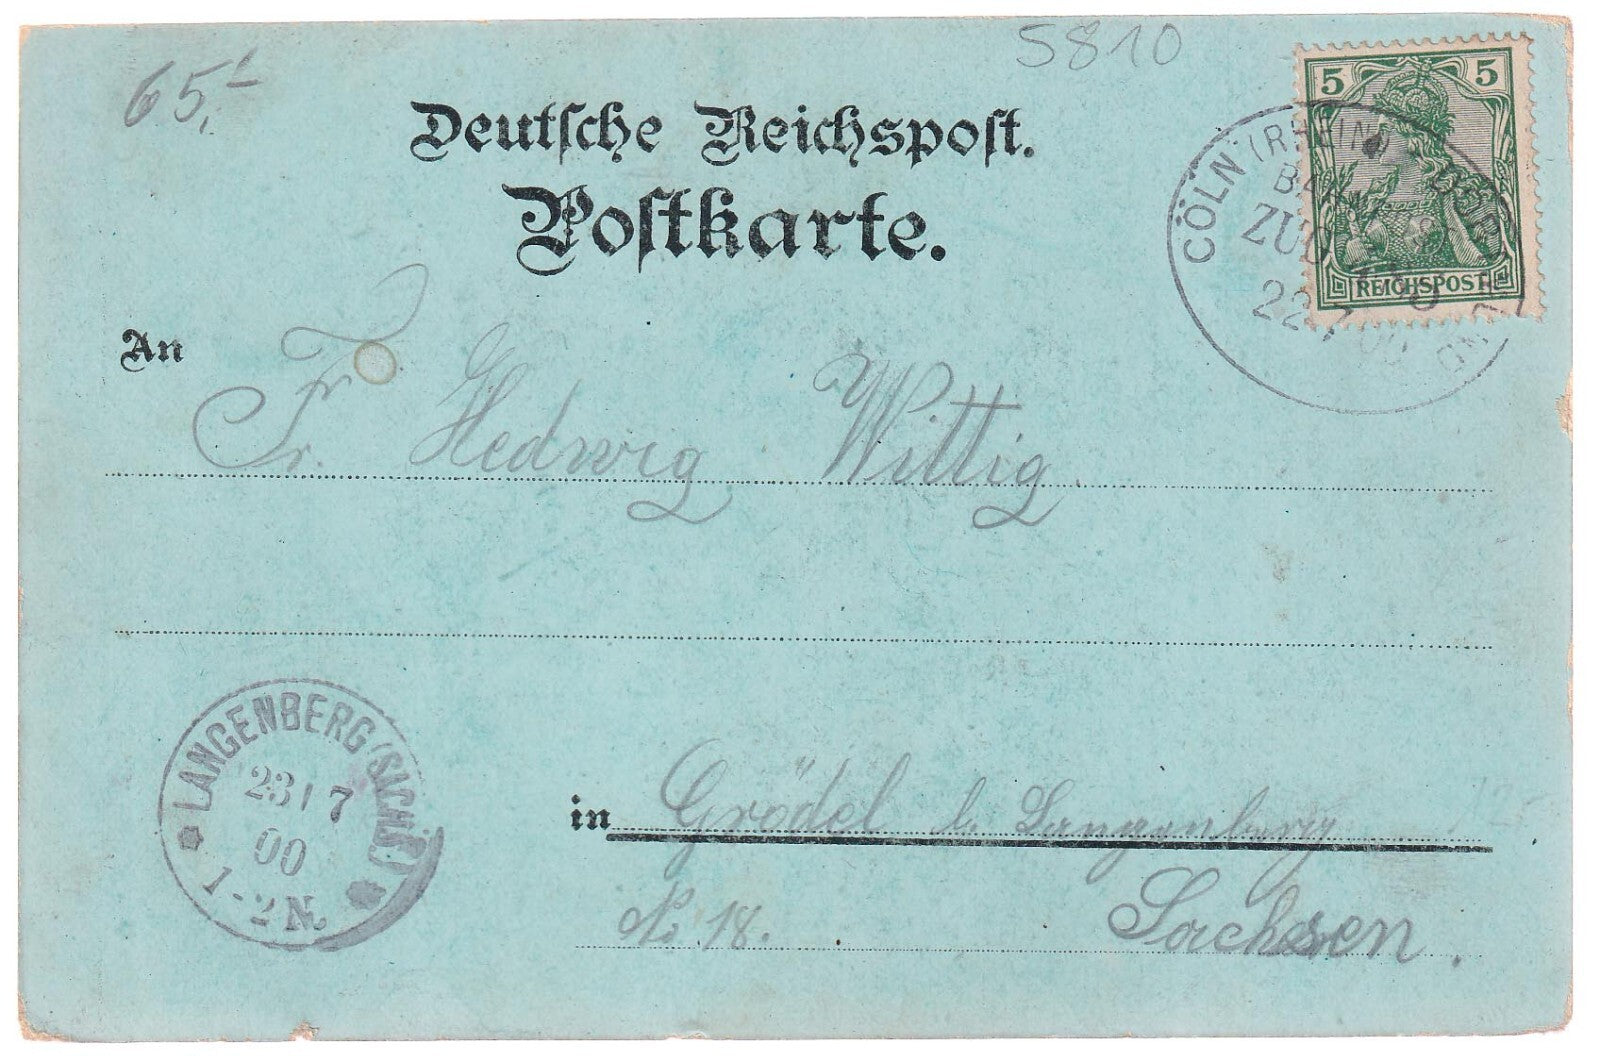 65,-
5810
Deutsche Reichspost.
Postkarte.
5 5
REICHSPOST
CÖLN (RHEIN)
BAHNPOST
ZUG
22 7 00
An Fr. Hedwig Wittig.
LANGENBERG (SACHS.)
23/7
00
1-2N.
in Grödel b. Langenberg
No. 18. Sachsen.